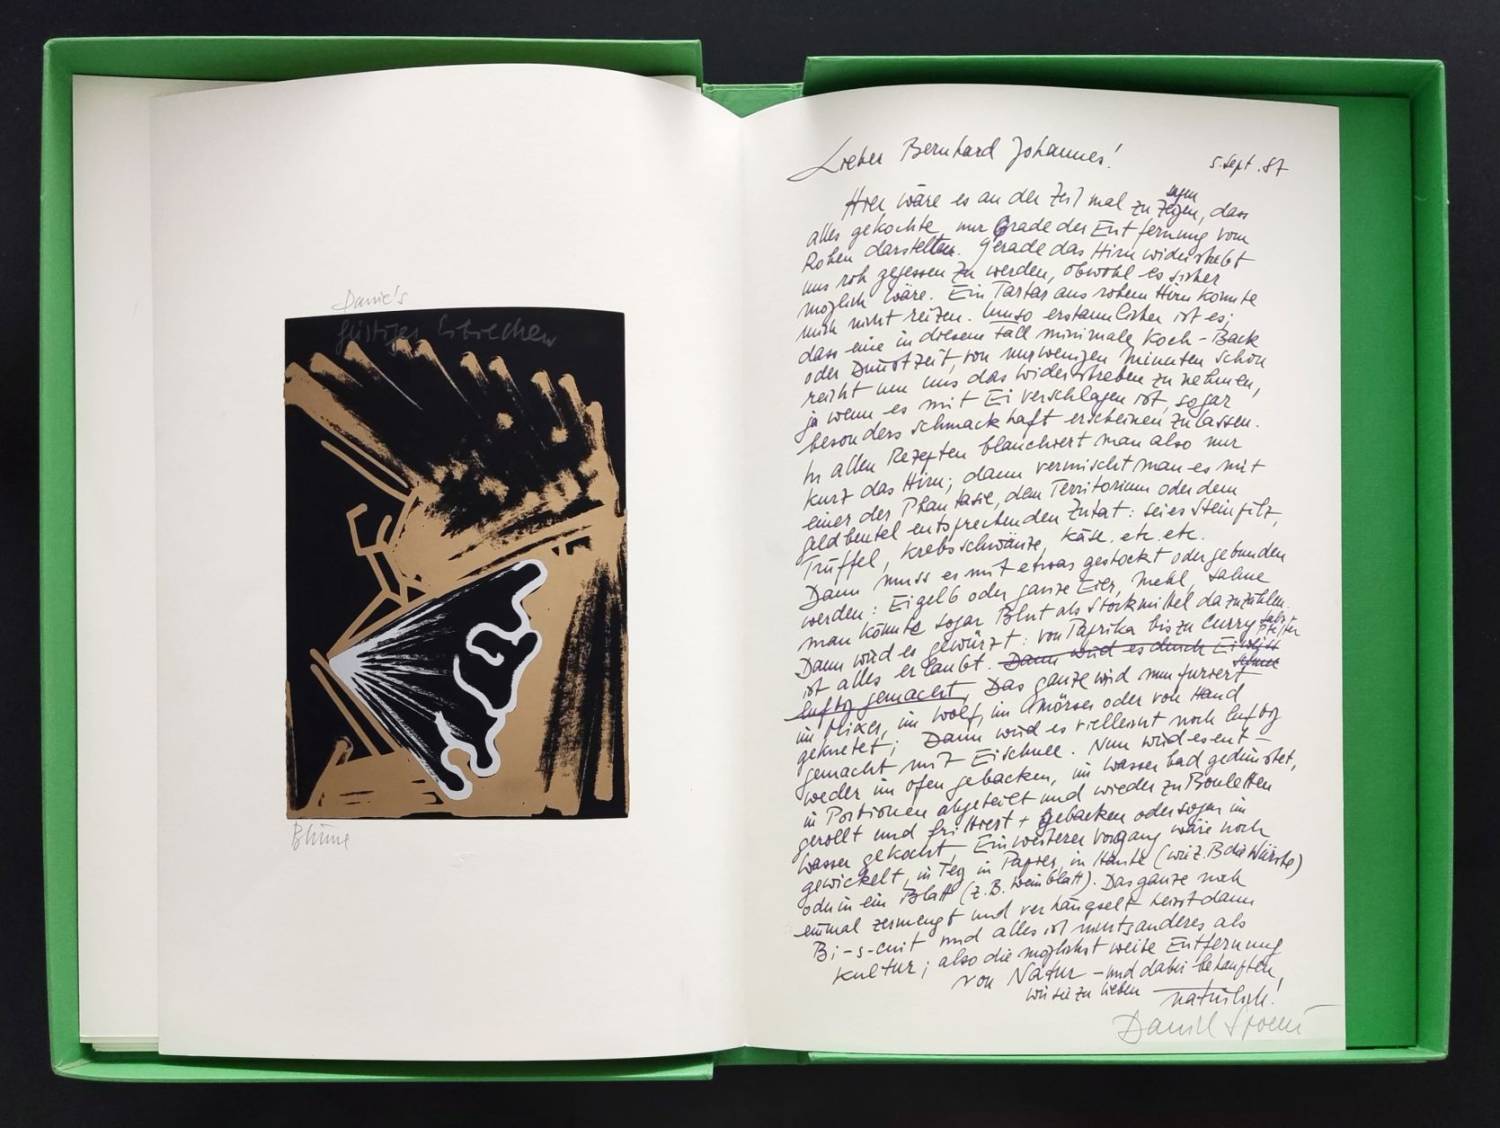 Daniel's
geistiges Erbrechen
Blume
Lieber Bernhard Johannes!
5. Sept. 87
Hier wäre es an der Zeit mal zu sagen zeigen, dass
alles gekochte nur Grade der Entfernung vom
Rohen darstellen. Gerade das Hirn widerstrebt
uns roh gegessen zu werden, obwohl es sicher
möglich wäre. Ein Tartar aus rohem Hirn könnte
mich nicht reizen. Umso erstaunlicher ist es,
dass eine in diesem Fall minimale Koch-Back
oder Dunstzeit, von nur wenigen Minuten schon
reicht um uns das widerstreben zu nehmen,
ja wenn es mit Ei verschlagen ist, sogar
besonders schmackhaft erscheinen zu lassen.
In allen Rezepten blanchiert man also nur
kurz das Hirn; dann vermischt man es mit
einer der Phantasie, dem Territorium oder dem
geldbeutel entsprechenden Zutat: sei es Steinpilz,
Trüffel, Krebsschwänze, Käse. etc. etc.
Dann muss es mit etwas gestockt oder gebunden
werden: Eigelb oder ganze Eier, Mehl, Sahne
man könnte sogar Blut als Stockmittel dazuzählen.
Dann wird es gewürzt: von Paprika bis zu Curry Salz Pfeffer
ist alles erlaubt. Dann wird es durch Eiweiss schnee
luftig gemacht. Das ganze wird nun püriert
im Mixer, im Wolf, im Mörser oder von Hand
geknetet; Dann wird es vielleicht noch luftig
gemacht mit Eischnee. Nun wird es ent-
weder im Ofen gebacken, im Wasserbad gedünstet,
in Portionen abgeteilt und wieder zu Bouletten
gerollt und frittiert + gebacken oder sogar im
Wasser gekocht. Ein weiterer Vorgang wäre noch
gewickelt, in Teig in Papier, in Häute (wie z.B die Würste)
oder in ein Blatt (z.B. Weinblatt). Das ganze noch
einmal zermengt und verhängselt heisst dann
Bi-s-cuit und alles ist nichts anderes als
Kultur; also die möglichst weite Entfernung
von Natur – und dabei behaupten,
wir sie zu lieben natürlich!
Daniel Spoerri